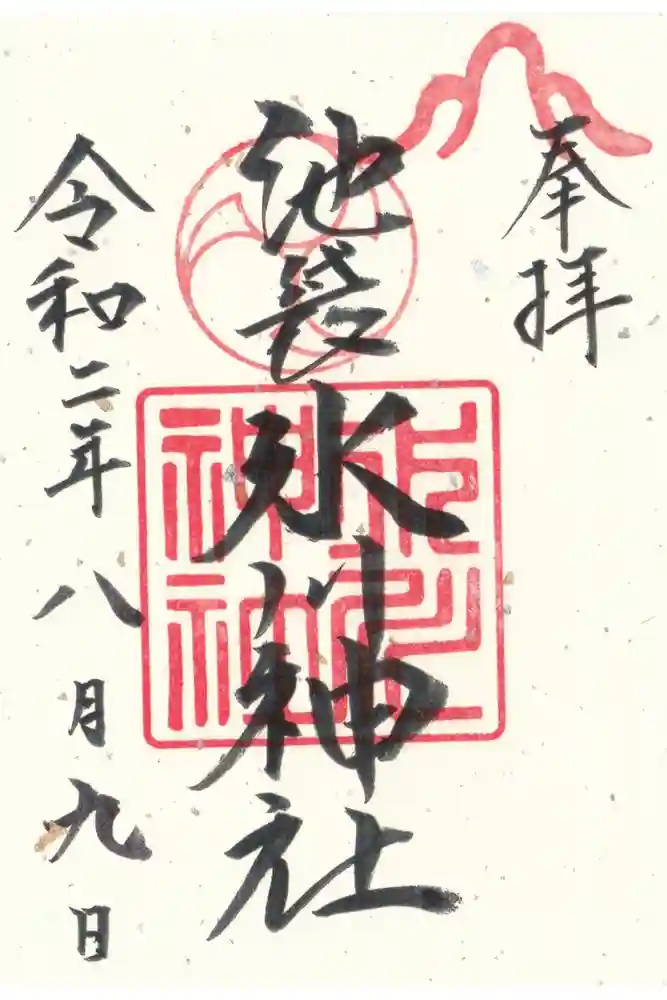 奉拝
池袋氷川神社
令和二年八月九日
氷川
神社